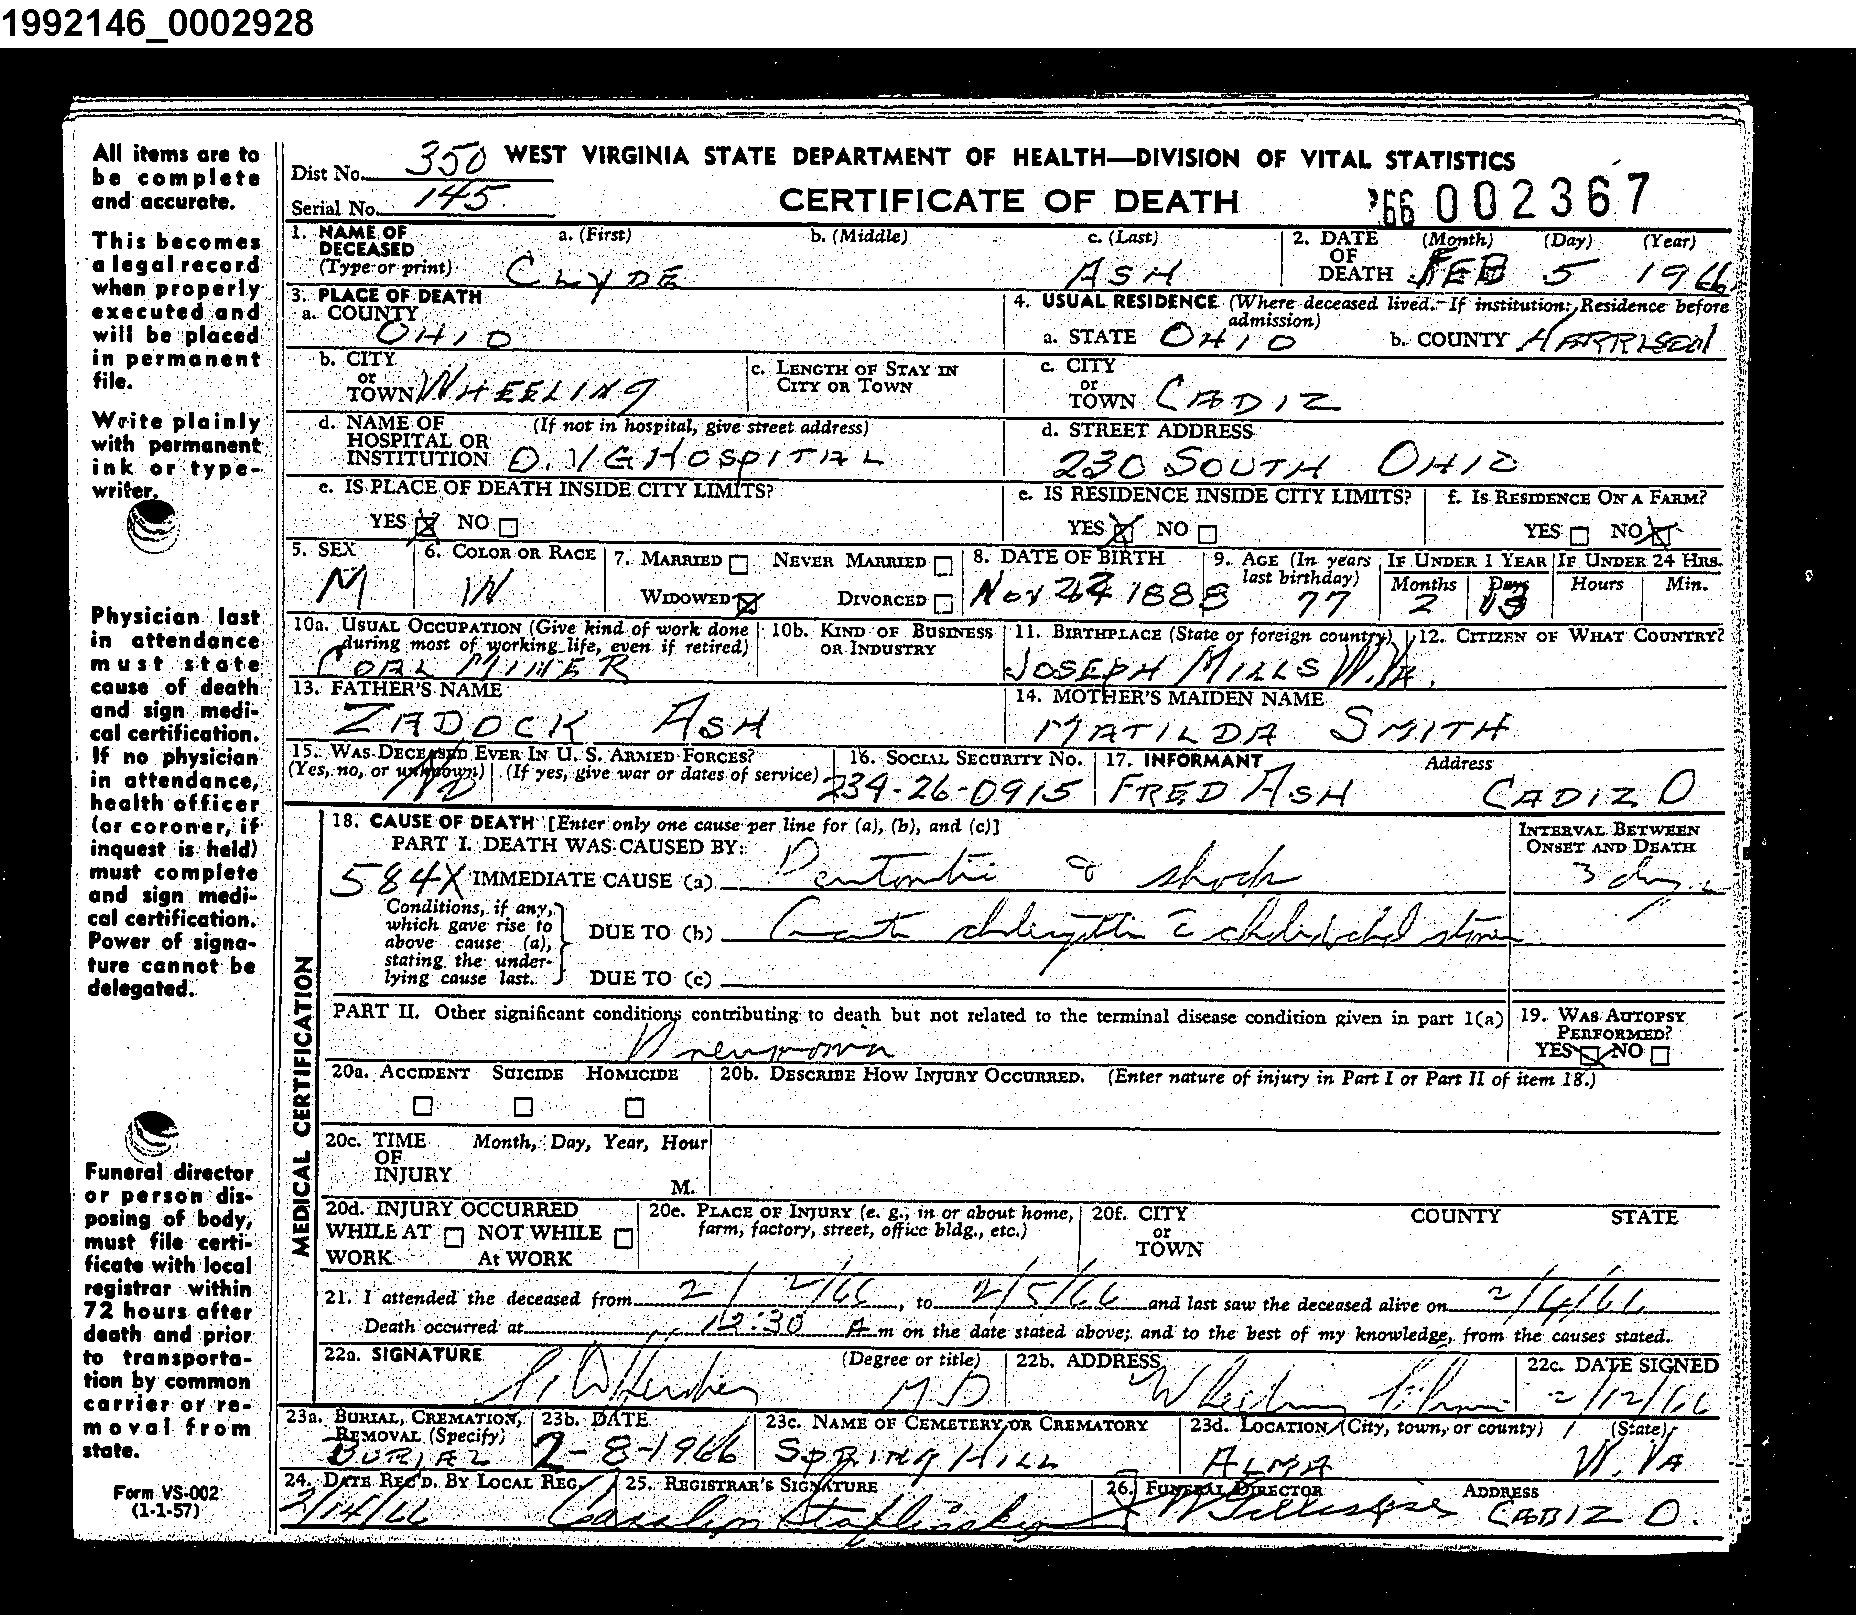 1992146_0002928
All items are to
be complete
and accurate.
This becomes
a legal record
when properly
executed and
will be placed
in permanent
file.
Write plainly
with permanent
ink or type-
writer.
Physician last
in attendance
must state
cause of death
and sign medi-
cal certification.
If no physician
in attendance,
health officer
(or coroner, if
inquest is held)
must complete
and sign medi-
cal certification.
Power of signa-
ture cannot be
delegated.
Funeral director
or person dis-
posing of body,
must file certi-
ficate with local
registrar within
72 hours after
death and prior
to transporta-
tion by common
carrier or re-
moval from
state.
Form VS-002
(1-1-57)
Dist No. 350 WEST VIRGINIA STATE DEPARTMENT OF HEALTH—DIVISION OF VITAL STATISTICS
Serial No. 145 CERTIFICATE OF DEATH 66 002367
1. NAME OF DECEASED (Type or print) a. (First) b. (Middle) c. (Last) 2. DATE OF DEATH (Month) (Day) (Year)
CLYDE ASH FEB 5 1966
3. PLACE OF DEATH 4. USUAL RESIDENCE (Where deceased lived. If institution: Residence before admission)
a. COUNTY OHIO a. STATE OHIO b. COUNTY HARRISON
b. CITY or TOWN WHEELING c. LENGTH OF STAY IN CITY OR TOWN c. CITY or TOWN CADIZ
d. NAME OF HOSPITAL OR INSTITUTION (If not in hospital, give street address) O.V.G HOSPITAL d. STREET ADDRESS 230 SOUTH OHIO
e. IS PLACE OF DEATH INSIDE CITY LIMITS? e. IS RESIDENCE INSIDE CITY LIMITS? f. IS RESIDENCE ON A FARM?
YES NO YES NO YES NO
5. SEX 6. COLOR OR RACE 7. MARRIED NEVER MARRIED 8. DATE OF BIRTH 9. AGE (In years last birthday) IF UNDER 1 YEAR IF UNDER 24 HRS.
Months Days Hours Min.
M W WIDOWED DIVORCED Nov 1888 77 2
10a. USUAL OCCUPATION (Give kind of work done during most of working life, even if retired) 10b. KIND OF BUSINESS OR INDUSTRY 11. BIRTHPLACE (State or foreign country) 12. CITIZEN OF WHAT COUNTRY?
COAL MINER JOSEPH MILLS W.VA.
13. FATHER'S NAME 14. MOTHER'S MAIDEN NAME
ZADOCK ASH MATILDA SMITH
15. WAS DECEASED EVER IN U. S. ARMED FORCES? 16. SOCIAL SECURITY NO. 17. INFORMANT Address
(Yes, no, or unknown) (If yes, give war or dates of service)
NO 234-26-0915 FRED ASH CADIZ O
MEDICAL CERTIFICATION
18. CAUSE OF DEATH [Enter only one cause per line for (a), (b), and (c)] INTERVAL BETWEEN ONSET AND DEATH
PART I. DEATH WAS CAUSED BY:
584X IMMEDIATE CAUSE (a) Peritonitis & shock 3 days
Conditions, if any, which gave rise to above cause (a), stating the under-lying cause last.
DUE TO (b) stones
DUE TO (c)
PART II. Other significant conditions contributing to death but not related to the terminal disease condition given in part 1(a) 19. WAS AUTOPSY PERFORMED?
Pneumonia YES NO
20a. ACCIDENT SUICIDE HOMICIDE 20b. DESCRIBE HOW INJURY OCCURRED. (Enter nature of injury in Part I or Part II of item 18.)
20c. TIME OF INJURY Month, Day, Year, Hour M.
20d. INJURY OCCURRED WHILE AT WORK NOT WHILE At WORK 20e. PLACE OF INJURY (e. g., in or about home, farm, factory, street, office bldg., etc.) 20f. CITY or TOWN COUNTY STATE
21. I attended the deceased from 2/2/66, to 2/5/66 and last saw the deceased alive on 2/4/66
Death occurred at 12:30 A m on the date stated above; and to the best of my knowledge, from the causes stated.
22a. SIGNATURE (Degree or title) 22b. ADDRESS 22c. DATE SIGNED
MD Wheeling 2/12/66
23a. BURIAL, CREMATION, REMOVAL (Specify) 23b. DATE 23c. NAME OF CEMETERY OR CREMATORY 23d. LOCATION (City, town, or county) (State)
BURIAL 2-8-1966 SPRING HILL ALMA W.VA
24. DATE REC'D. BY LOCAL REG. 25. REGISTRAR'S SIGNATURE 26. FUNERAL DIRECTOR ADDRESS
2/14/66 Carolyn CADIZ O.